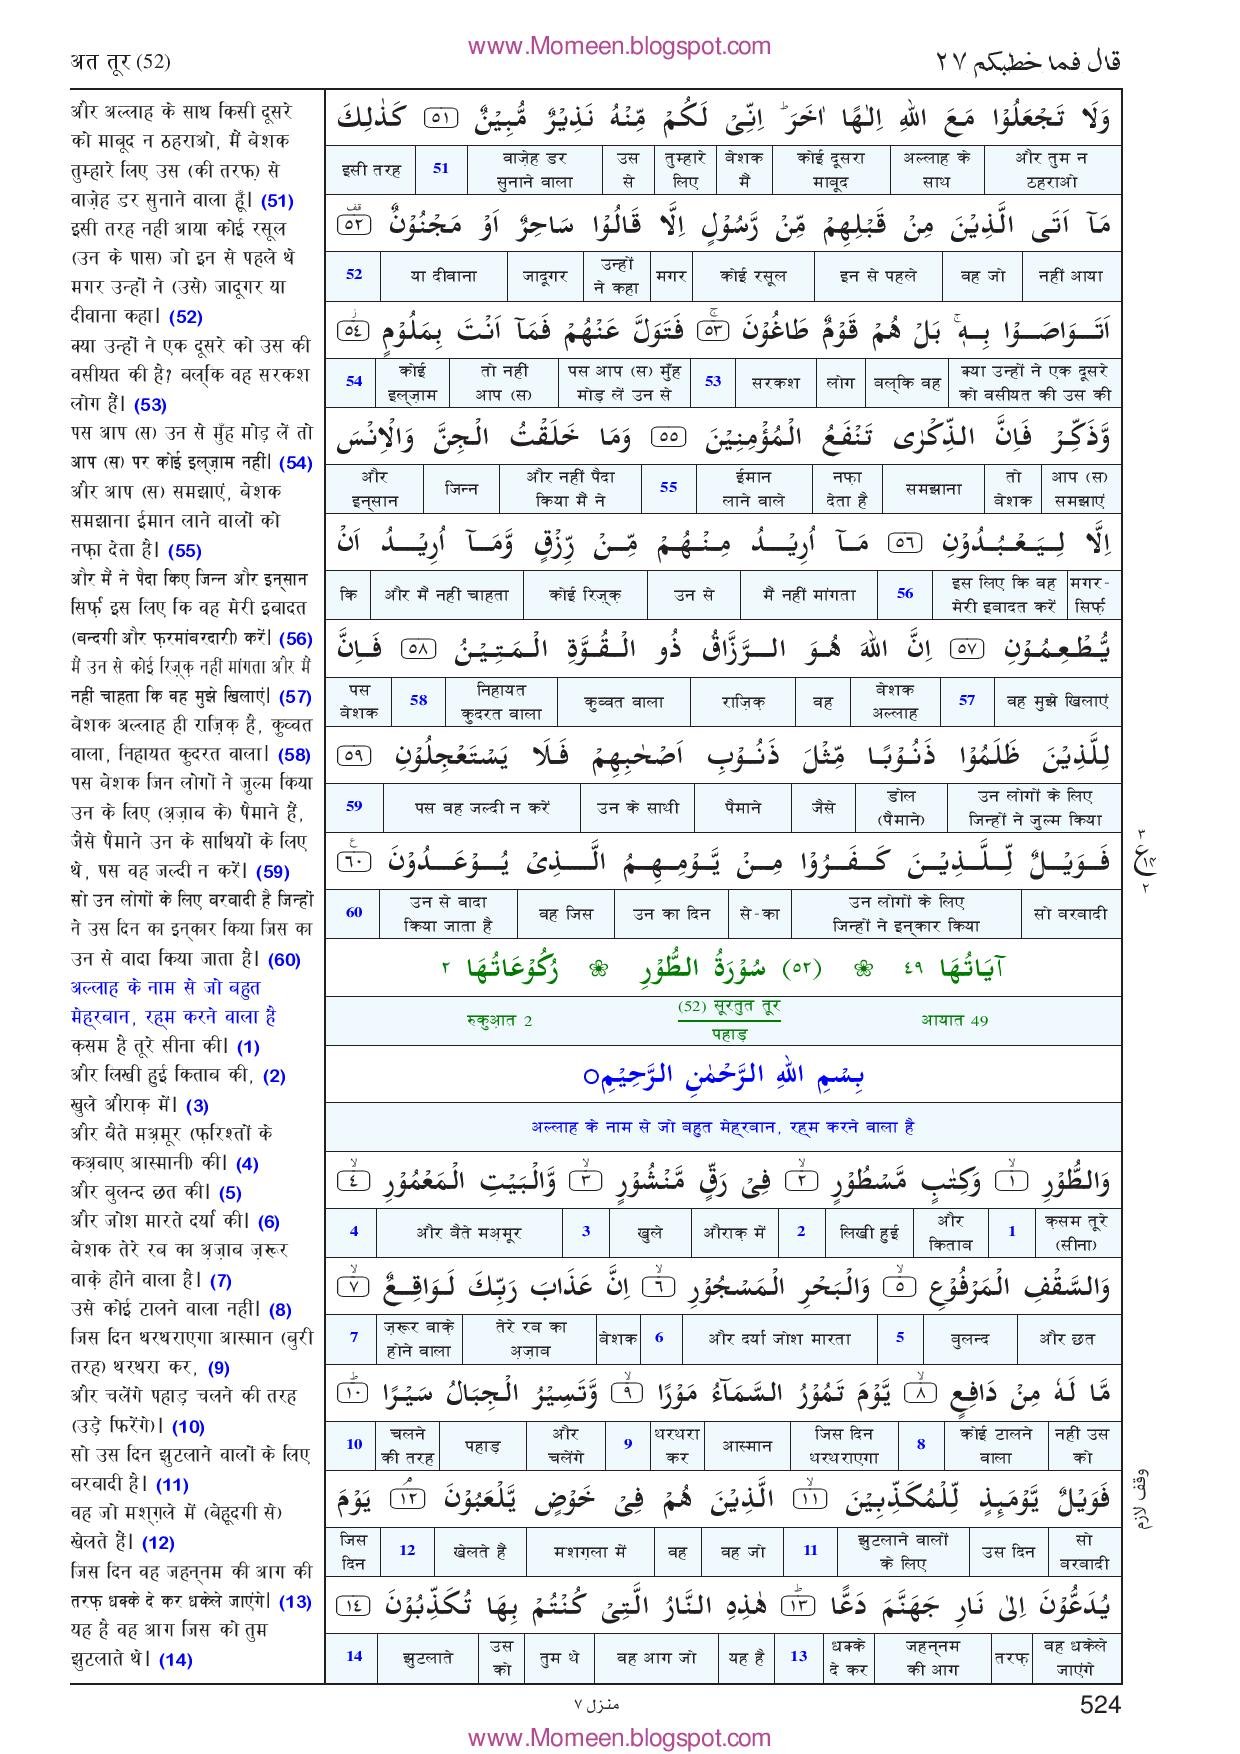 www.Momeen.blogspot.com
अत तूर (52)
قال فما خطبكم ٢٧
और अल्लाह के साथ किसी दूसरे
को माबूद न ठहराओ, मैं बेशक
तुम्हारे लिए उस (की तरफ़) से
वाज़ेह डर सुनाने वाला हूँ। (51)
इसी तरह नहीं आया कोई रसूल
(उन के पास) जो इन से पहले थे
मगर उन्हों ने (उसे) जादूगर या
दीवाना कहा। (52)
क्या उन्हों ने एक दूसरे को उस की
वसीयत की है? बल्कि वह सरकश
लोग हैं। (53)
पस आप (स) उन से मुँह मोड़ लें तो
आप (स) पर कोई इल्ज़ाम नहीं। (54)
और आप (स) समझाएं, बेशक
समझाना ईमान लाने वालों को
नफ़ा देता है। (55)
और मैं ने पैदा किए जिन्न और इन्सान
सिर्फ़ इस लिए कि वह मेरी इबादत
(बन्दगी और फ़रमांबरदारी) करें। (56)
मैं उन से कोई रिज़्क़ नहीं मांगता और मैं
नहीं चाहता कि वह मुझे खिलाएं। (57)
बेशक अल्लाह ही राज़िक़ है, कुव्वत
वाला, निहायत कुदरत वाला। (58)
पस बेशक जिन लोगों ने जुल्म किया
उन के लिए (अज़ाब के) पैमाने हैं,
जैसे पैमाने उन के साथियों के लिए
थे, पस वह जल्दी न करें। (59)
सो उन लोगों के लिए बरबादी है जिन्हों
ने उस दिन का इन्कार किया जिस का
उन से वादा किया जाता है। (60)
अल्लाह के नाम से जो बहुत
मेह्रबान, रह्म करने वाला है
क़सम है तूरे सीना की। (1)
और लिखी हुई किताब की, (2)
खुले औराक़ में। (3)
और बैते मअ़मूर (फ़रिश्तों के
कअ़बाए आस्मानी) की। (4)
और बुलन्द छत की। (5)
और जोश मारते दर्या की। (6)
बेशक तेरे रब का अ़ज़ाब ज़रूर
वाक़े होने वाला है। (7)
उसे कोई टालने वाला नहीं। (8)
जिस दिन थरथराएगा आस्मान (बुरी
तरह) थरथरा कर, (9)
और चलेंगे पहाड़ चलने की तरह
(उड़े फिरेंगे)। (10)
सो उस दिन झुटलाने वालों के लिए
बरबादी है। (11)
वह जो मश्ग़ले में (बेहूदगी से)
खेलते हैं। (12)
जिस दिन वह जहन्नम की आग की
तरफ़ धक्के दे कर धकेले जाएंगे। (13)
यह है वह आग जिस को तुम
झुटलाते थे। (14)
وَلَا تَجْعَلُوْا مَعَ اللّٰهِ اِلٰهًا اٰخَرَ ؕ اِنِّىْ لَكُمْ مِّنْهُ نَذِيْرٌ مُّبِيْنٌ ٥١ كَذٰلِكَ
और तुम न ठहराओ | अल्लाह के साथ | कोई दूसरा माबूद | बेशक मैं | तुम्हारे लिए | उस से | वाज़ेह डर सुनाने वाला | 51 | इसी तरह
مَآ اَتَى الَّذِيْنَ مِنْ قَبْلِهِمْ مِّنْ رَّسُوْلٍ اِلَّا قَالُوْا سَاحِرٌ اَوْ مَجْنُوْنٌ ٥٢
नहीं आया | वह जो | इन से पहले | कोई रसूल | मगर | उन्हों ने कहा | जादूगर | या दीवाना | 52
اَتَوَاصَوْا بِهٖ ۚ بَلْ هُمْ قَوْمٌ طَاغُوْنَ ٥٣ فَتَوَلَّ عَنْهُمْ فَمَآ اَنْتَ بِمَلُوْمٍ ٥٤
क्या उन्हों ने एक दूसरे को वसीयत की उस की | बल्कि वह | लोग | सरकश | 53 | पस आप (स) मुँह मोड़ लें उन से | तो नहीं आप (स) | कोई इल्ज़ाम | 54
وَّذَكِّرْ فَاِنَّ الذِّكْرٰى تَنْفَعُ الْمُؤْمِنِيْنَ ٥٥ وَمَا خَلَقْتُ الْجِنَّ وَالْاِنْسَ
आप (स) समझाएं | तो बेशक | समझाना | नफ़ा देता है | ईमान लाने वाले | 55 | और नहीं पैदा किया मैं ने | जिन्न | और इन्सान
اِلَّا لِيَعْبُدُوْنِ ٥٦ مَآ اُرِيْدُ مِنْهُمْ مِّنْ رِّزْقٍ وَّمَآ اُرِيْدُ اَنْ
मगर-सिर्फ़ | इस लिए कि वह मेरी इबादत करें | 56 | मैं नहीं मांगता | उन से | कोई रिज़्क़ | और मैं नहीं चाहता | कि
يُّطْعِمُوْنِ ٥٧ اِنَّ اللّٰهَ هُوَ الرَّزَّاقُ ذُو الْقُوَّةِ الْمَتِيْنُ ٥٨ فَاِنَّ
वह मुझे खिलाएं | 57 | बेशक अल्लाह | वह | राज़िक़ | कुव्वत वाला | निहायत कुदरत वाला | 58 | पस बेशक
لِلَّذِيْنَ ظَلَمُوْا ذَنُوْبًا مِّثْلَ ذَنُوْبِ اَصْحٰبِهِمْ فَلَا يَسْتَعْجِلُوْنِ ٥٩
उन लोगों के लिए जिन्हों ने जुल्म किया | डोल (पैमाने) | जैसे | पैमाने | उन के साथी | पस वह जल्दी न करें | 59
فَوَيْلٌ لِّلَّذِيْنَ كَفَرُوْا مِنْ يَّوْمِهِمُ الَّذِىْ يُوْعَدُوْنَ ٦٠
सो बरबादी | उन लोगों के लिए जिन्हों ने इन्कार किया | से-का | उन का दिन | वह जिस | उन से वादा किया जाता है | 60
٣ ع ١٤ ٢
آيَاتُهَا ٤٩ ❀ (٥٢) سُوْرَةُ الطُّوْرِ ❀ رُكُوْعَاتُهَا ٢
आयात 49 | (52) सूरतुत तूर पहाड़ | रुकुआ़त 2
بِسْمِ اللّٰهِ الرَّحْمٰنِ الرَّحِيْمِ○
अल्लाह के नाम से जो बहुत मेह्रबान, रह्म करने वाला है
وَالطُّوْرِ ١ وَكِتٰبٍ مَّسْطُوْرٍ ٢ فِىْ رَقٍّ مَّنْشُوْرٍ ٣ وَّالْبَيْتِ الْمَعْمُوْرِ ٤
क़सम तूरे (सीना) | 1 | और किताब | लिखी हुई | 2 | औराक़ में | खुले | 3 | और बैते मअ़मूर | 4
وَالسَّقْفِ الْمَرْفُوْعِ ٥ وَالْبَحْرِ الْمَسْجُوْرِ ٦ اِنَّ عَذَابَ رَبِّكَ لَوَاقِعٌ ٧
और छत | बुलन्द | 5 | और दर्या जोश मारता | 6 | बेशक | तेरे रब का अ़ज़ाब | ज़रूर वाक़े होने वाला | 7
مَّا لَهٗ مِنْ دَافِعٍ ٨ يَّوْمَ تَمُوْرُ السَّمَآءُ مَوْرًا ٩ وَّتَسِيْرُ الْجِبَالُ سَيْرًا ١٠
नहीं उस को | कोई टालने वाला | 8 | जिस दिन थरथराएगा | आस्मान | थरथरा कर | 9 | और चलेंगे | पहाड़ | चलने की तरह | 10
فَوَيْلٌ يَّوْمَىِٕذٍ لِّلْمُكَذِّبِيْنَ ١١ الَّذِيْنَ هُمْ فِىْ خَوْضٍ يَّلْعَبُوْنَ ١٢ يَوْمَ
सो बरबादी | उस दिन | झुटलाने वालों के लिए | 11 | वह जो | वह | मशग़ला में | खेलते हैं | 12 | जिस दिन
وقف لازم
يُدَعُّوْنَ اِلٰى نَارِ جَهَنَّمَ دَعًّا ١٣ هٰذِهِ النَّارُ الَّتِىْ كُنْتُمْ بِهَا تُكَذِّبُوْنَ ١٤
वह धकेले जाएंगे | तरफ़ | जहन्नम की आग | धक्के दे कर | 13 | यह है | वह आग जो | तुम थे | उस को | झुटलाते | 14
منزل ٧
524
www.Momeen.blogspot.com